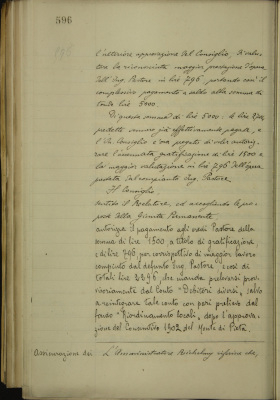 596
l'ulteriore approvazione del Consiglio, di valu-
tare la riconosciuta maggior prestazione d'opera
dell'Ing. Pastore in lire 796, portando così il
complessivo pagamento a saldo alla somma di
totali lire 5000.
Di queste somme di lire 5000.
predette vennero già effettivamente pagate, e
il Consiglio è ora pregato di voler autoriz-
zare l'accennata gratificazione di lire 1500 e
la maggior valutazione in lire 796 dell'opera
prestata dal compianto Ing. Pastore.
Il Consiglio
sentito il Relatore, ed accogliendo le pro-
poste della Giunta Permanente
autorizza il pagamento agli eredi Pastore della
somma di lire 1500 a titolo di gratificazione,
e di lire 796 per corrispettivo di maggior lavoro
compiuto dal defunto Ing. Pastore e così di
totali lire 2296 da prelevarsi prov-
visoriamente dal Conto "Debitori diversi", salvo
a reintegrare tale conto con pari prelievo dal
fondo "Riordinamento locali", dopo l'approva-
zione del Consuntivo 1902 del Monte di Pietà.
Assicurazione dei L'Amministratore riferisce che,